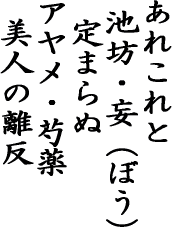 あれこれと
池坊・妄（ぼう）
定まらぬ
アヤメ・芍薬
美人の離反